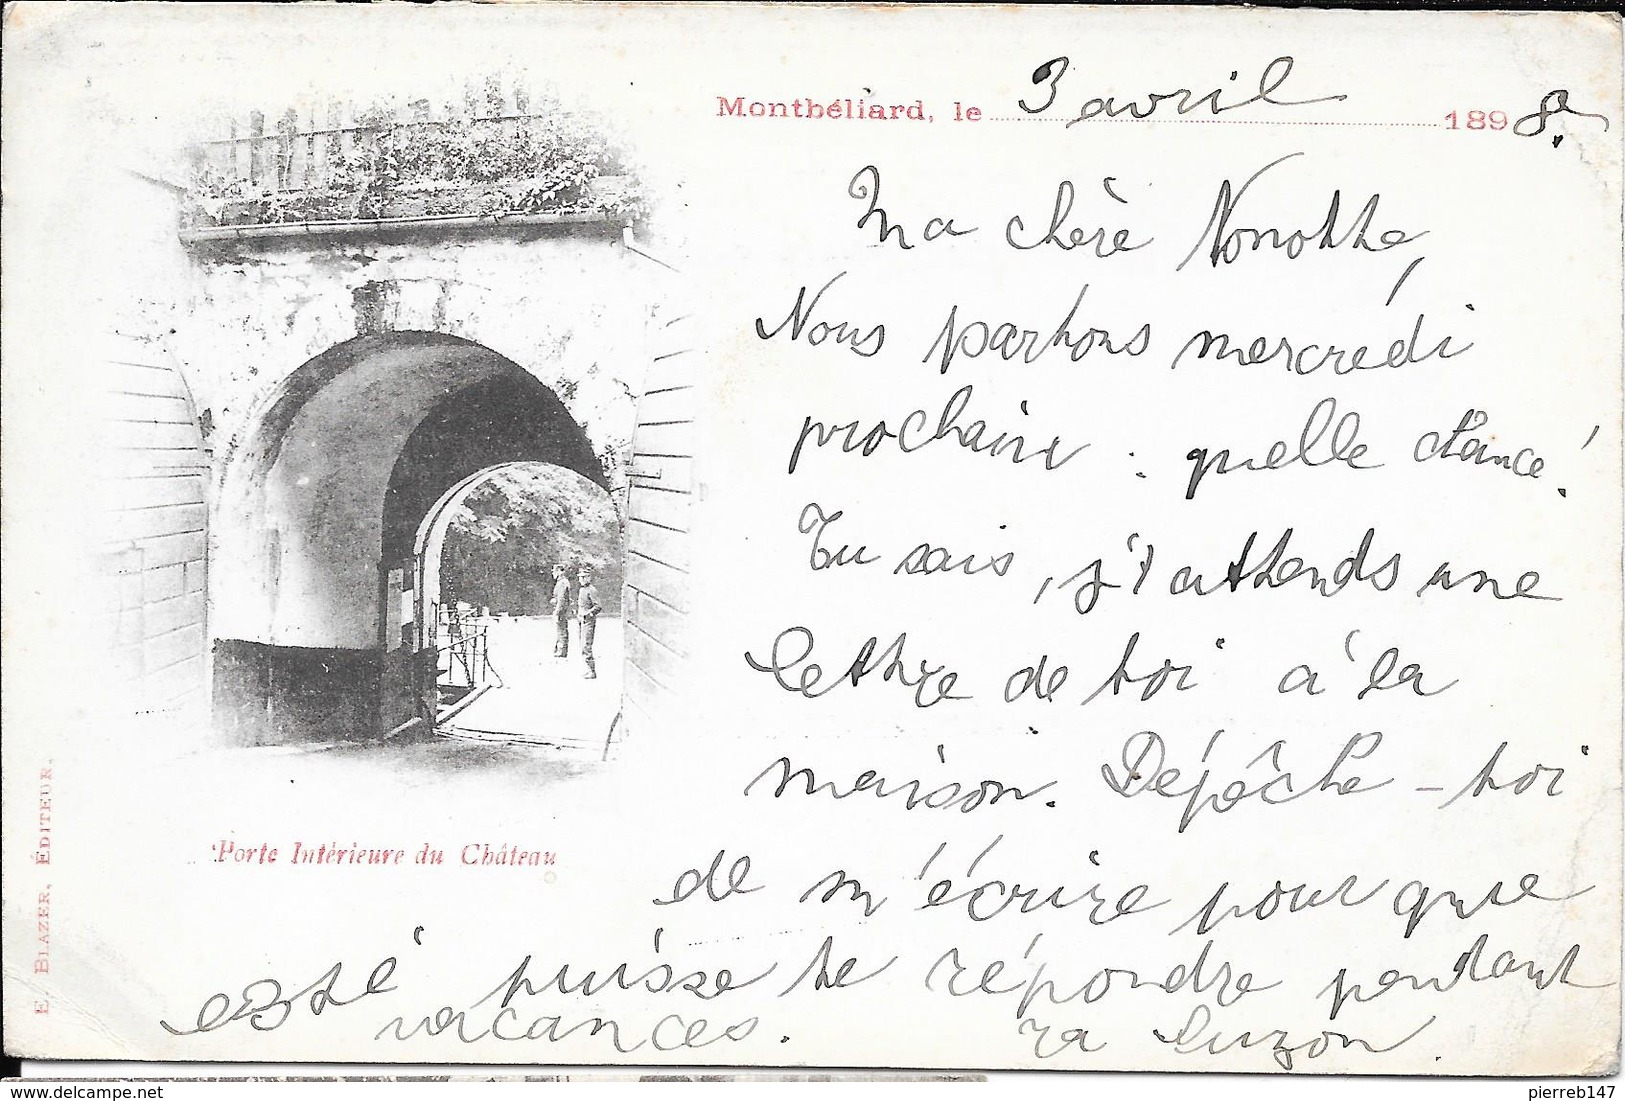 Montbéliard, le 3 avril 1898.
Ma chère Nonotte,
Nous partons mercredi
prochain : quelle chance !
Tu sais, j'attends une
lettre de toi à la
maison. Dépêche-toi
de m'écrire pour que
puisse te répondre pendant
vacances. ta Suzon.
Porte Intérieure du Château
E. BLAZER, ÉDITEUR.
pierreb147